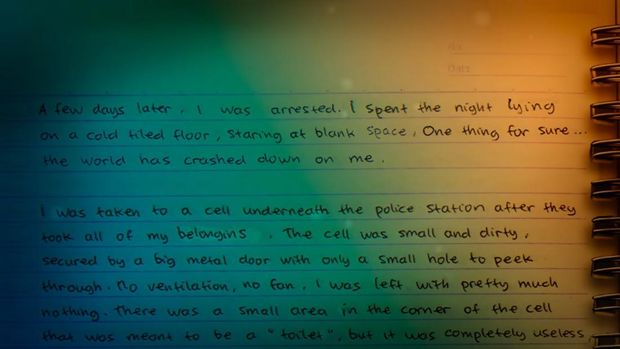 No.
Date
A few days later, I was arrested. I spent the night lying
on a cold tiled floor, staring at blank space, One thing for sure...
the world has crashed down on me.
I was taken to a cell underneath the police station after they
took all of my belongins. The cell was small and dirty,
secured by a big metal door with only a small hole to peek
through. No ventilation, no fan. I was left with pretty much
nothing. There was a small area in the corner of the cell
that was meant to be a "toilet", but it was completely useless